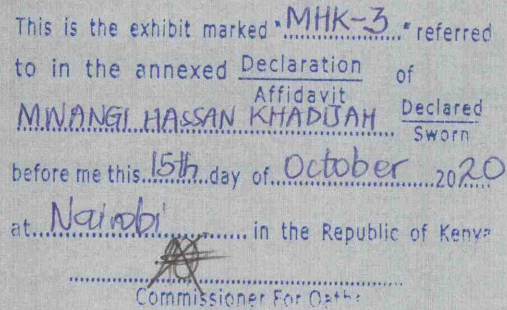 This is the exhibit marked "MHK-3" referred
to in the annexed Declaration of
Affidavit
MWANGI HASSAN KHADIJAH Declared
Sworn
before me this 15th day of October 2020
at Nairobi in the Republic of Kenya
Commissioner For Oaths